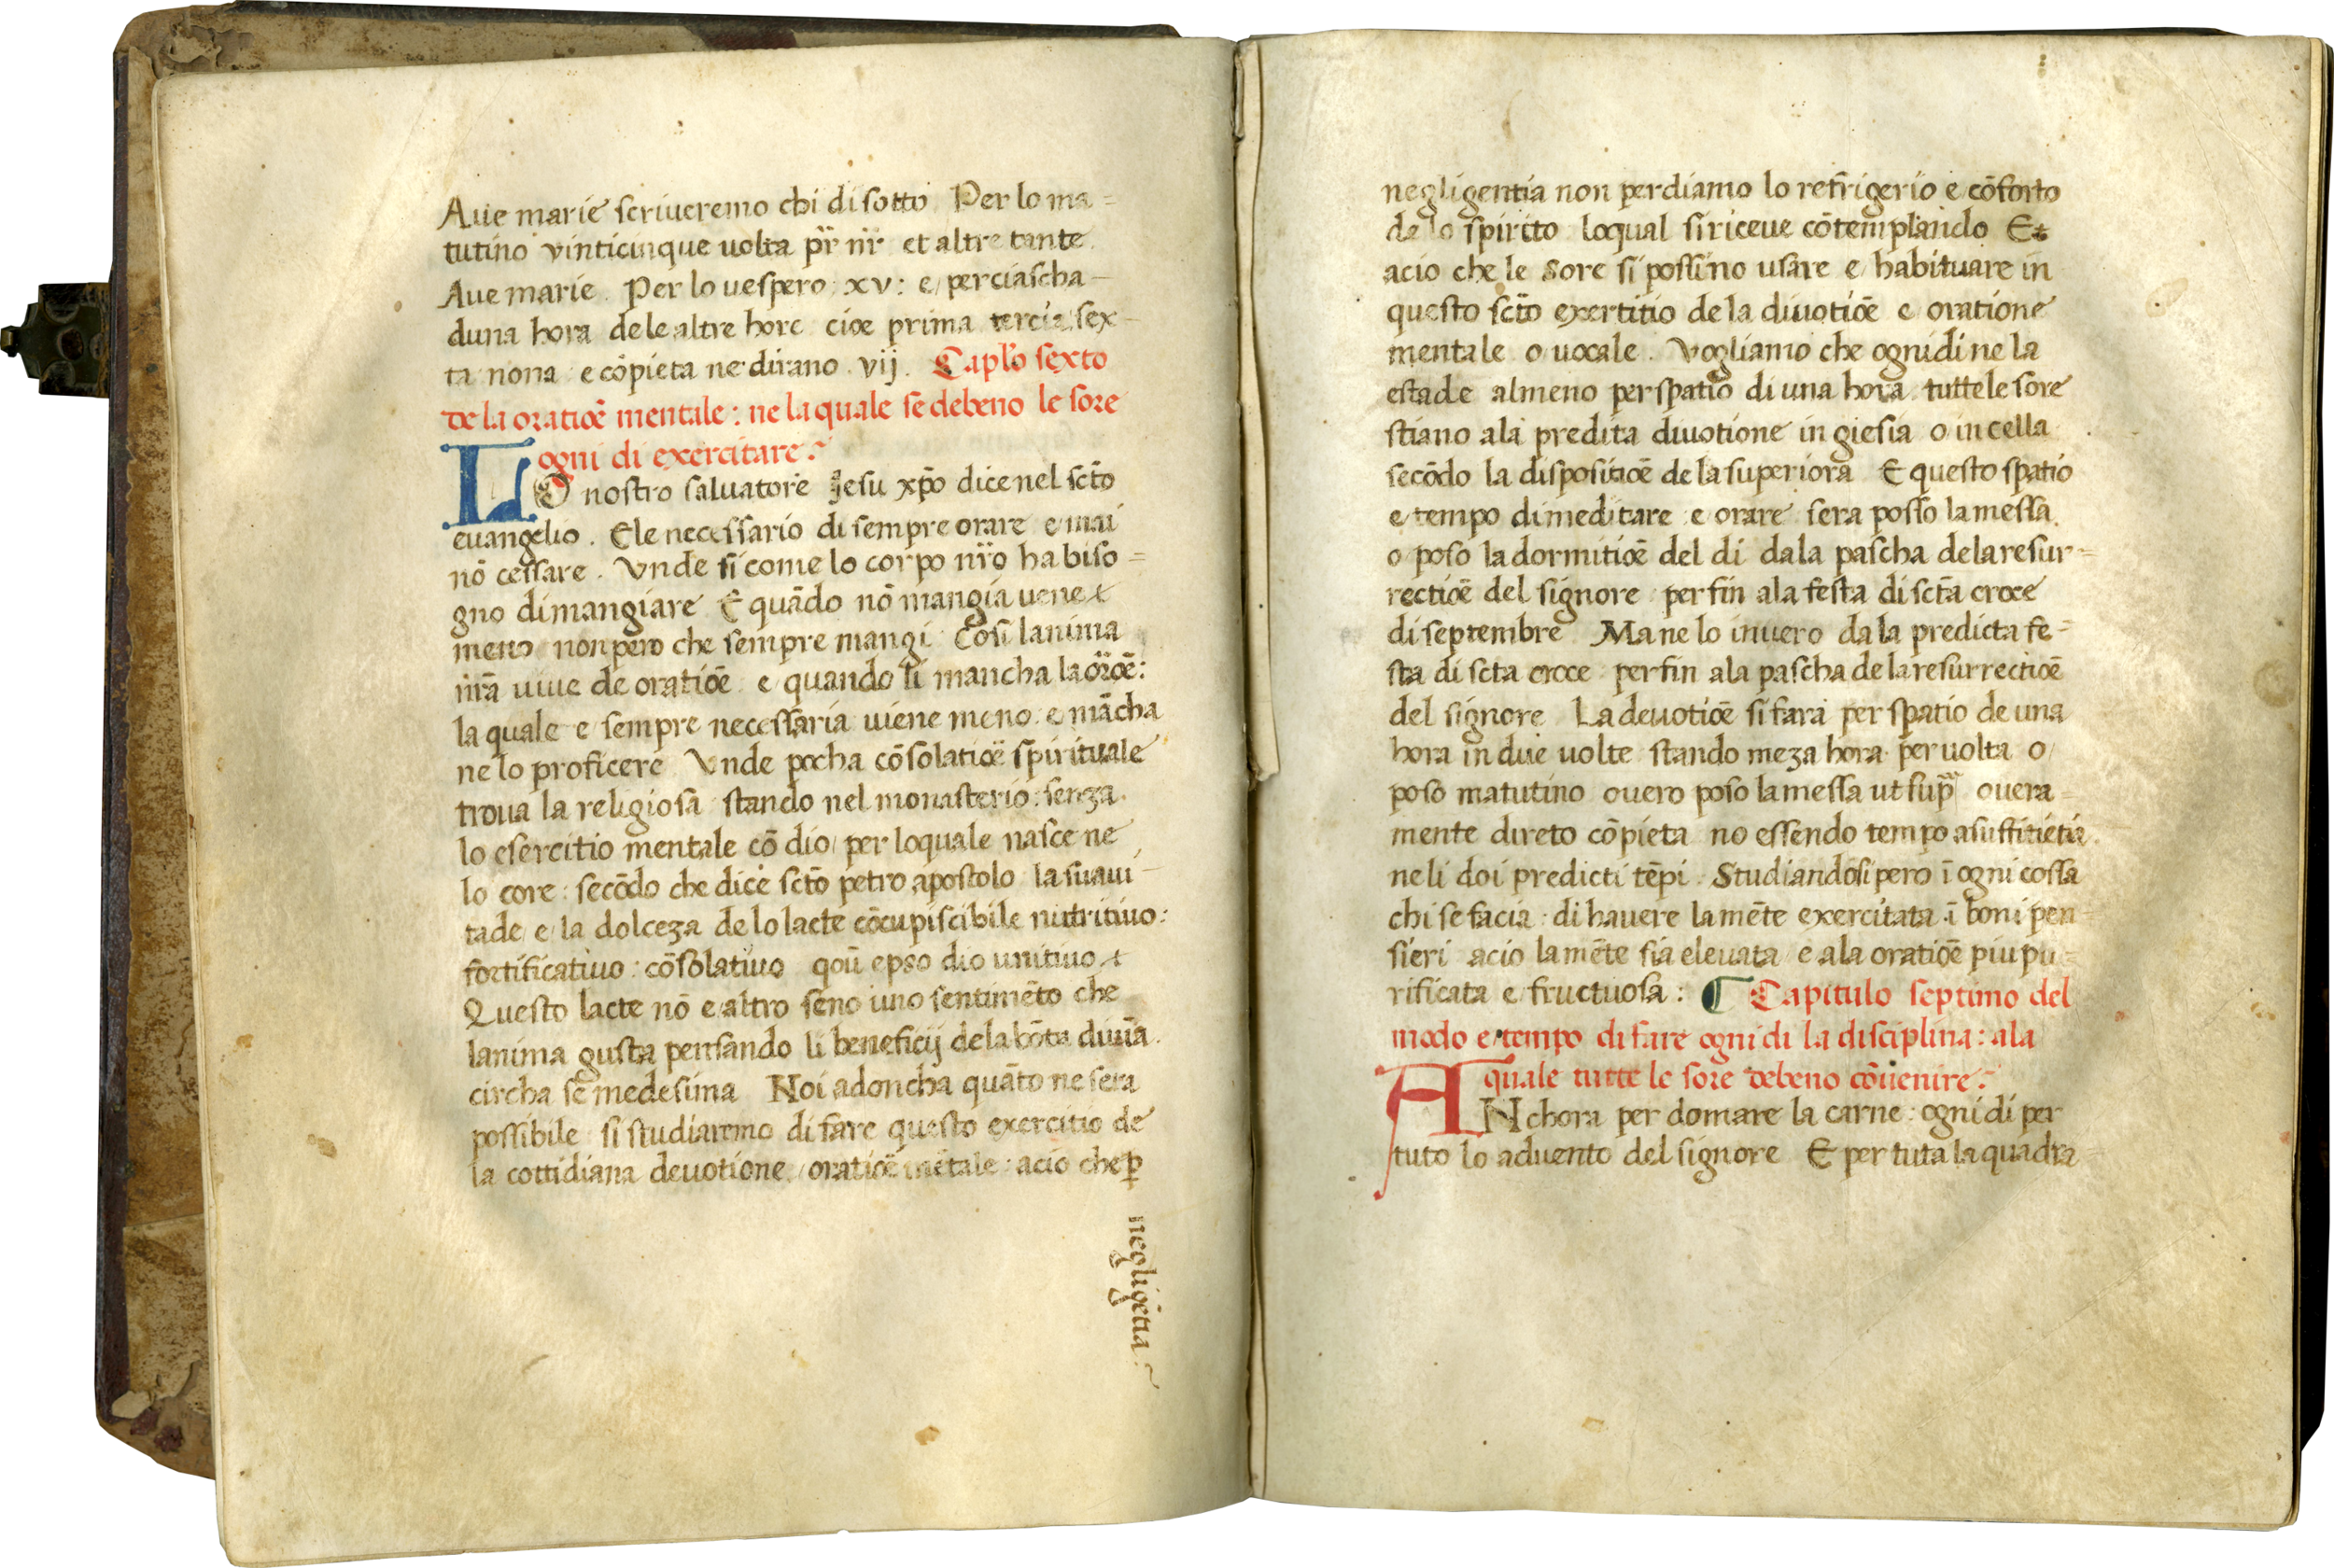 Aue marie scriueremo chi di sotto Per lo ma=
tutino vinticinque uolta pr̄ nr̄ et altre tante
Aue marie. Per lo uespero: xv: e perciascha-
duna hora de le altre hore cioe prima tercia sex-
ta nona e cōpieta ne dirano. vij. Caplo sexto
de la oratiōe mentale: ne la quale se debeno le sore
ogni di exercitare:
LO nostro saluatore Jesu xp̄o dice nel sct̄o
euangelio. Ele necessario di sempre orare e mai
nō cessare. Vnde si come lo corpo nr̄o ha biso=
gno di mangiare E quādo nō mangia uene &
meno non pero che sempre mangi Cosi lanima
nr̄a uiue de oratiōe e quando li mancha la or̄oē:
la quale e sempre necessaria uiene meno e mācha
ne lo proficere Vnde pocha cōsolatiōe spirituale
troua la religiosa stando nel monasterio: senza
lo esercitio mentale cō dio per loquale nasce ne
lo core: secōdo che dice sct̄o petro apostolo la suaui-
tade e la dolceza de lo lacte cōcupiscibile nutritiuo:
fortificatiuo: cōsolatiuo qoū epso dio unitiuo &
Questo lacte nō e altro seno uno sentimēto che
lanima gusta pensando li beneficij de la bōta diuīa.
circha se medesima Noi adoncha quāto ne sera
possibile si studiaremo di fare questo exercitio de
la cottidiana deuotione oratiōe mētale: acio che ꝑ
negligētia:
negligentia non perdiamo lo refrigerio e cōforto
de lo spirito loqual si riceue cōtemplando Et
acio che le sore si possino usare e habituare in
questo sct̄o exertitio de la diuotiōe e oratione
mentale o uocale. Vogliamo che ogni di ne la
estade almeno per spatio di una hora tutte le sore
stiano ala predita diuotione in giesia o in cella
secōdo la dispositiōe de la superiora E questo spatio
e tempo di meditare e orare sera posso la messa
o poso la dormitiōe del di da la pascha de la resur=
rectiōe del signore per fin ala festa di sct̄a croce
di septembre Ma ne lo inuero da la predicta fe=
sta di scta croce per fin ala pascha de la resurrectiōe
del signore La deuotiōe si fara per spatio de una
hora in due uolte stando meza hora per uolta o
poso matutino ouero poso la messa ut sup̄ ouera=
mente direto cōpieta no essendo tempo a suffitiētia
ne li doi predicti tēpi. Studiandosi pero ī ogni cossa
chi se facia: di hauere la mēte exercitata ī boni pen=
sieri acio la mēte sia eleuata e ala oratiōe piu pu=
rificata e fructuosa: ¶ Capitulo septimo del
modo e tempo di fare ogni di la disciplina: ala
quale tutte le sore debeno cōuenire:
ANchora per domare la carne: ogni di per
tuto lo aduento del signore E per tuta la quadra